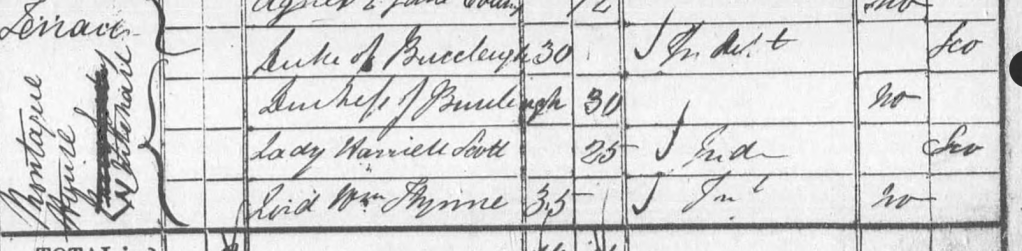 Agnes E Jane 12 no
Terrace
Duke of Buccleugh 30 Indt Sco
Duchess of Buccleugh 30 no
Lady Harriett Scott 25 Ind Sco
Lord Wm Thynne 35 Int no
Montague
Whitehall
TOTAL in